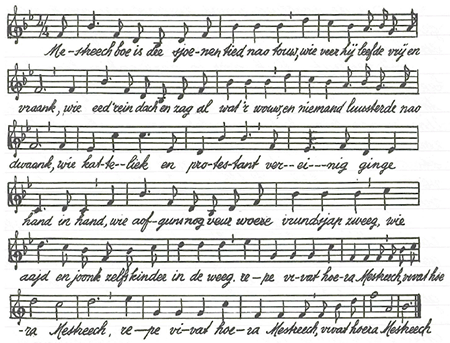 Me--streech boe is dee sjoe-nen tied nao touw, wie veer hij leefde vrij en
vraank, wie eed'rein dach en zag al wat 'r wouw, en niemand luusterde nao
dwaank, wie kat-te--liek en pro-tes-tant ver--ei---nig ginge
hand in hand, wie aof-guns nog veur woere vrundsjap zweeg, wie
aajd en joonk zelfs kinder in de weeg. re-pe vi-vat hoe-ra Mestreech, vivat hoe
-ra Mestreech, re-pe vi-vat hoe-ra Mestreech, vivat hoera Mestreech